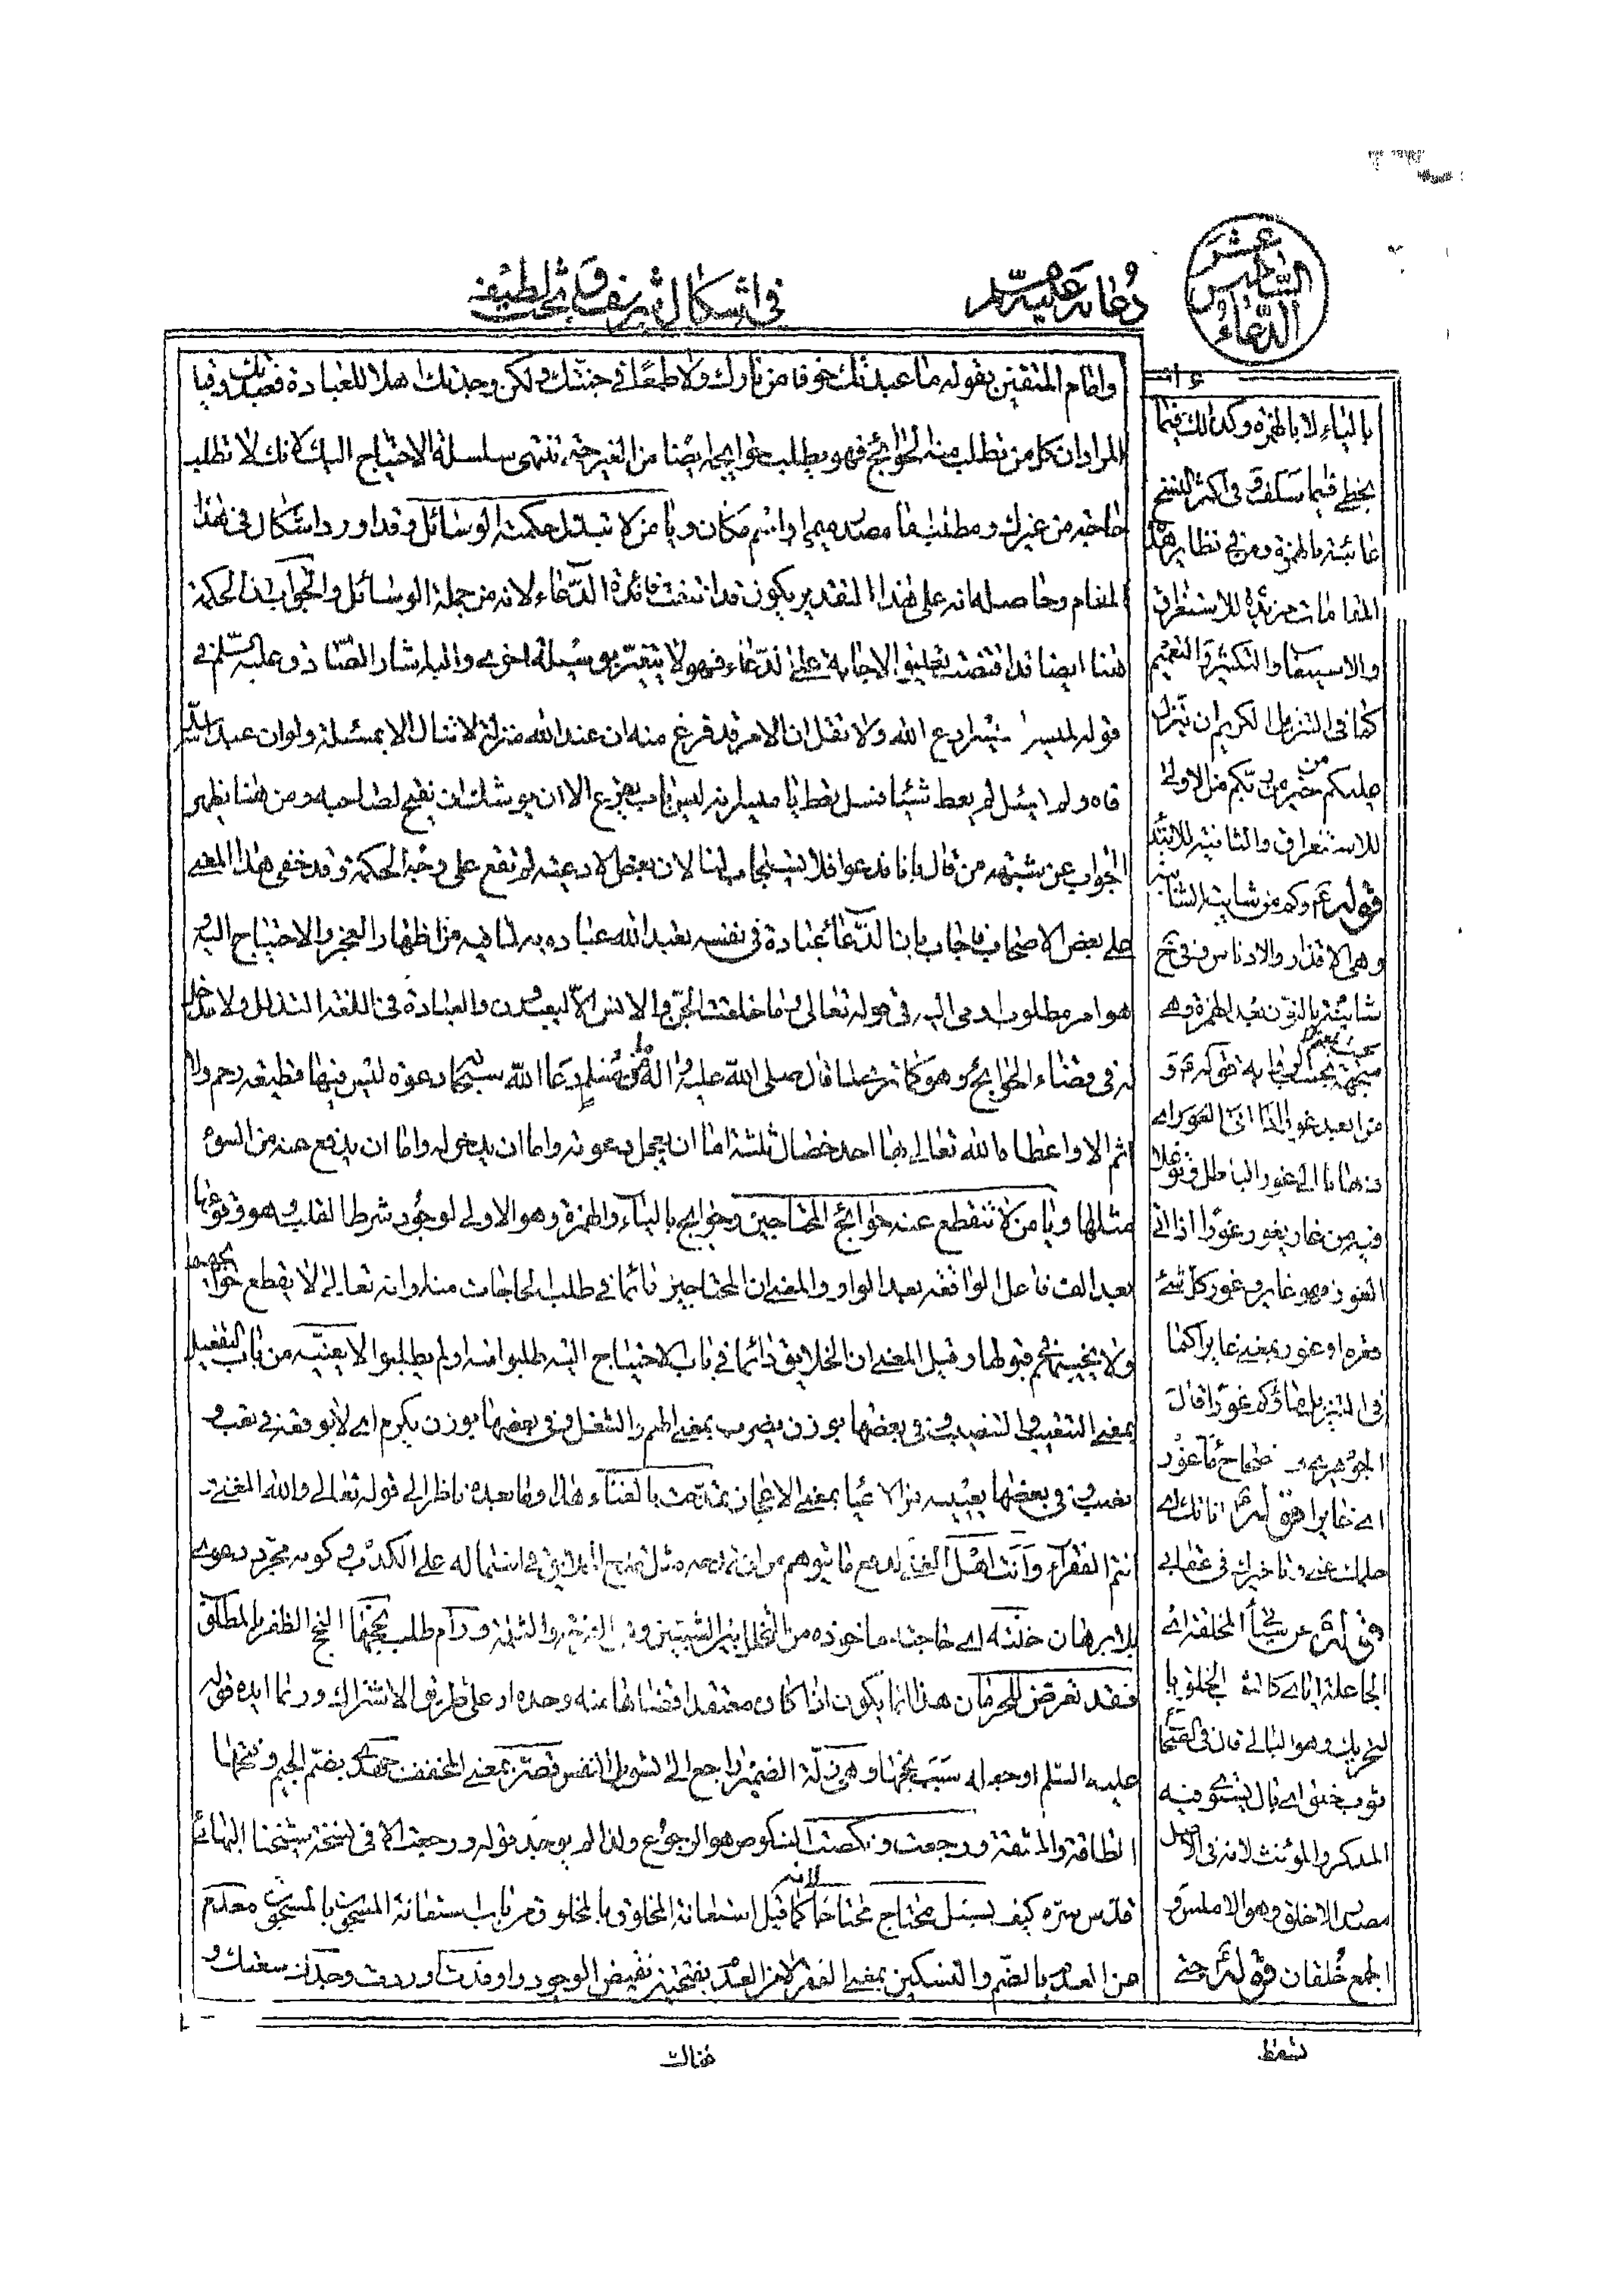 الدعاء السادس عشر
دعائه عليه السلام
في اشكال شريف وبحث لطيف
وامام المتقين بقوله ما عبدتك خوفا من نارك ولا طمعا في جنتك ولكن وجدتك اهلا للعبادة فعبدتك ويا
المراد ان كل من تطلب منه الحوائج فهو يطلب حوايجه ايضا من الغير حتى تنتهى سلسلة الاحتياج اليك لانك لا تطلب
حاجته من غيرك و مصدر ميمي او اسم مكان ويا من لا تبدل حكمته الوسائل وقد اورد اشكال في هذا
المقام وحاصله انه على هذا التقدير يكون قد انتفت فائدة الدعاء لانه من جملة الوسائل والجواب ان الحكمة
هنا ايضا قد اقتضت تعليق الاجابة على الدعاء فهو لا يتغير بوسيلة اخرى واليه اشار الصادق عليه السلم في
قوله لميسر يا ميسر ادع الله ولا تقل ان الامر قد فرغ منه ان عند الله منزلة لا تنال الا بمسئلة ولو ان عبدا سد
فاه ولم يسئل لم يعط شيئا فسل تعط يا ميسر انه ليس باب يقرع الا ان يوشك ان يفتح لصاحبه ومن هنا يظهر
الجواب عن شبهة من قال باناندعوا فلا يستجاب لنا لان بعض الادعية لم تقع على وجه الحكمة وقد خفى هذا المعنى
على بعض الاصحاب فاجاب بان الدعاء عبادة في نفسه يعبد الله عباده به لما فيه من اظهار العجز والاحتياج اليه
هو امر مطلوب في قوله تعالى وما خلقت الجن والانس الا ليعبدون والعبادة في اللغة التذلل ولا مدخل
له في قضاء الحوايج وهو كما ترى قال صلى الله عليه واله ما من مسلم دعا الله سبحانه دعوة ليس فيها قطيعة رحم ولا
اثم الا واعطاه الله تعالى بها احد خصال ثلثة اما ان يعجل دعوته واما ان يدخر له واما ان يدفع عنه من السوء
مثلها ويا من لا تنقطع عنه حوائج المحتاجين وحوايج بالياء والهمزة وهو الاولى لوجود شرط القلب وهو وقوعها
بعد الف فاعل الواقعة بعد الواو والمعنى ان المحتاجين دائما في طلب الحاجات منه وانه تعالى لا يقطع حوائجهم
ولا يخيبهم قبولها وقيل المعنى ان الخلايق دائما في باب الاحتياج اليه طلبوا منه او لم يطلبوا لا يعنيه من باب التفعيل
بمعنى التعب وفي بعضها بوزن يضرب بمعنى الهم والشغل وفي بعضها بوزن يكرم اي لا يوقعه في تعب و
نصب وفي بعضها يعييه من الاعيا بمعنى الاعجاز تمدحت بالغناء هذا وما بعده ناظر الى قوله تعالى والله الغنى و
انتم الفقراء وانت اهل الغنى
بلا برهان خلته اي حاجته ماخوذة من الخلل بين الشيئين ورام طلب نجحها النجح الظفر بالمطلوب
فقد تعرض للحرمان هذا انما يكون اذا كان معتقدا قضائها منه وحده او على طريق الاشتراك وربما ايده قوله
عليه السلم او جعله سبب نجحها وهى زلة الضمير راجع الى تسويل النفس قصر بمعنى المخفف جهدي بضم الجيم وفتحها
الطاقة والمشقة ورجعت ونكصت النكوص هو الرجوع ولذا لم يوجد قوله ورجعت الا في نسخة شيخنا البهائى
قدس سره كيف يسئل محتاج محتاجا كما قيل استعانة المخلوق بالمخلوق من باب استعانة المسجون بالمسجون معدم
من العدم بالضم والتسكين بمعنى الفقر لا من العدم بفتحتين نقيض الوجود واوفدت اوردت وجدك سعتك و
هناك
بالياء لا بالهمزة وكذلك فيما
بخطى فيما سلف وفى اكثر النسخ
عائبة بالهمزة ومن في نظاير هذه
المقامات مزيدة للاستغراق
والاستيعاب والتكثير والتعميم
كما فى التنزيل الكريم ان ينزل
عليكم من خير من ربكم من الاولى
للاستغراق والثانية للابتداء
قوله ع وكم من شائبة الشائبة
وهى الاقذار والادناس وفي نخ
شائنة بالنون بعد الهمزة وهى
من ابعد غورا اذا اتى الغور اى
ذهابا الى غور الباطل وتوغلا
فيه من غار يغور غورا اذا اتى
الغور وهو غاير وغور كل شئ
قعره او غور بمعنى غاير كما
في التنزيل ماؤكم غورا قال
الجوهرى صحاح ماء غور
اى غاير قوله اناتك اى
حلمك عنى وتاخيرك في عقابى
الجاعلة اياى كالشئ الخلق با
لتحريك وهو البالى قال فى الصحاح
ثوب خلق اى بال يستوي فيه
المذكر والمؤنث لانه فى الاصل
مصدر الاخلق وهو الاملس و
الجمع خلقان قوله حتى
تسقط